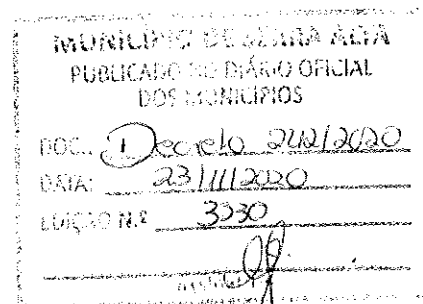 MUNICÍPIO DE SERRA ALTA
PUBLICADO NO DIÁRIO OFICIAL
DOS MUNICÍPIOS
DOC.: Decreto 242/2020
DATA: 23/11/2020
EDIÇÃO N.º 3330